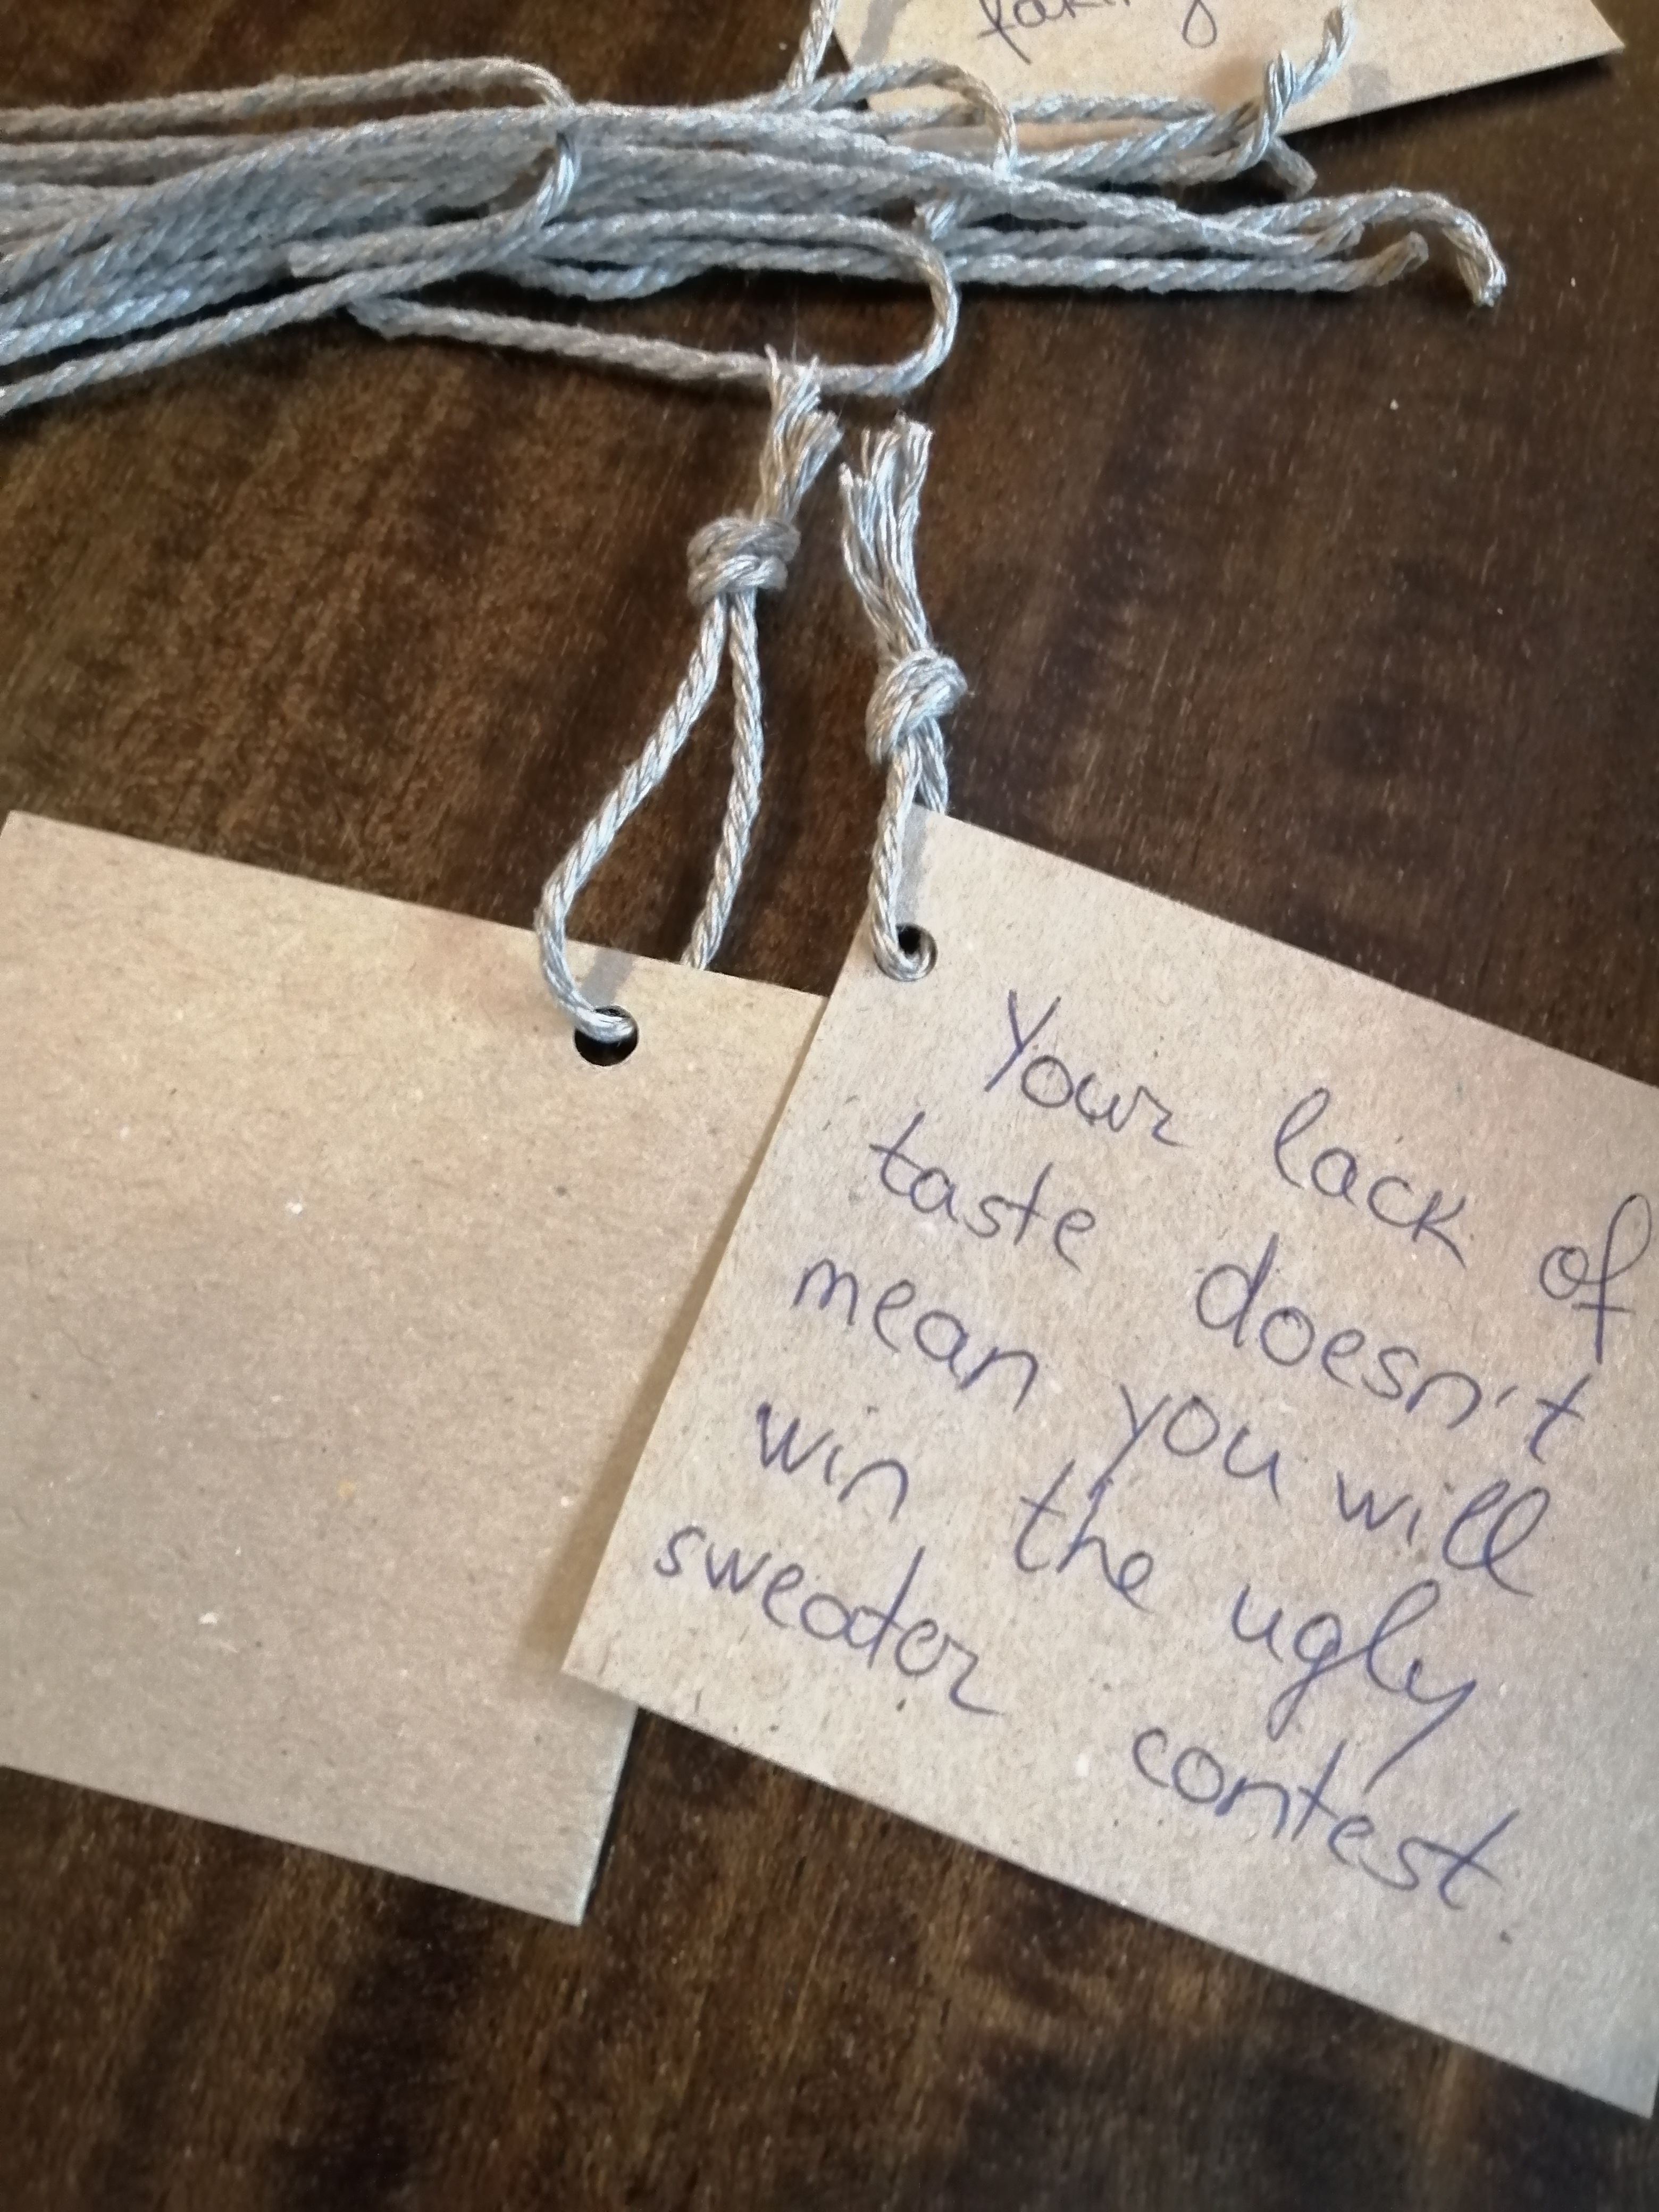 Your lack of
taste doesn't
mean you will
win the ugly
sweater contest.